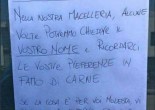 NELLA NOSTRA MACELLERIA, ALCUNE
VOLTE POTREMMO CHIEDERE IL
VOSTRO NOME E RICORDARCI
LE VOSTRE PREFERENZE IN
FATTO DI CARNE
SE LA COSA È PER VOI MOLESTA VI